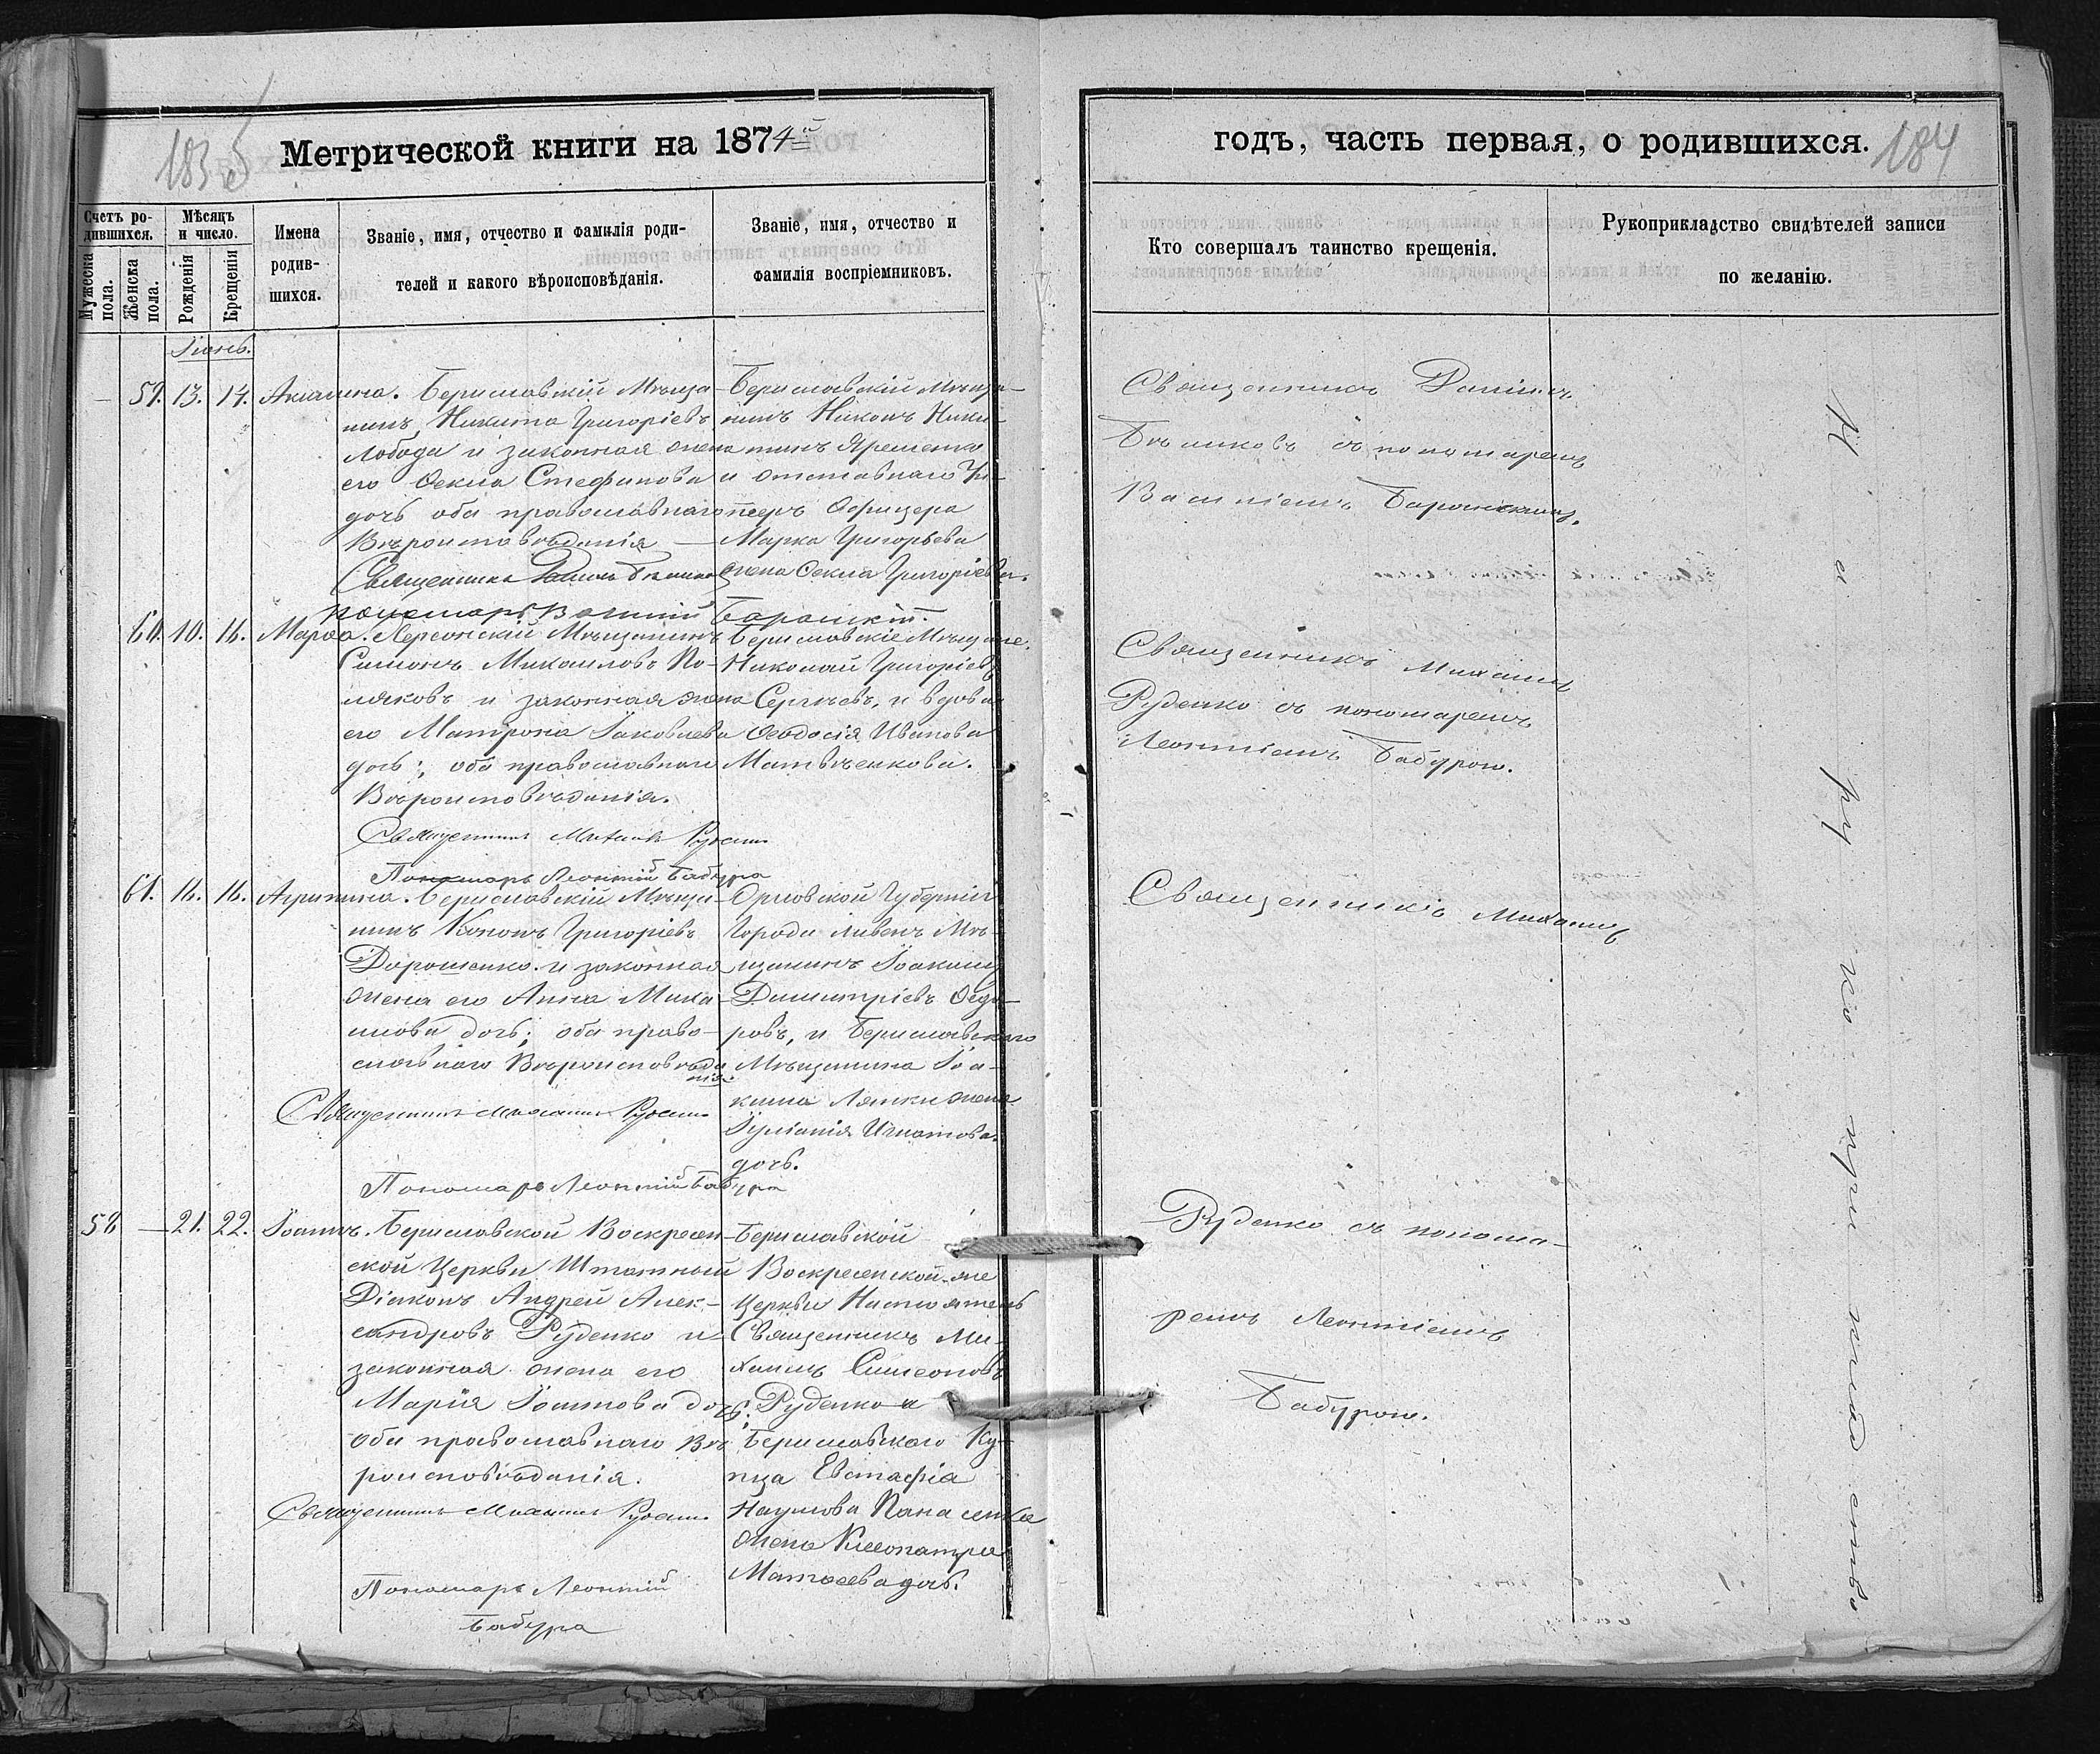 183 б
Метрической книги на 1874й
годъ, часть первая, о родившихся.
184
Счетъ ро-
дившихся.
Мужеска
пола.
Женска
пола.
Мѣсяцъ
и число.
Рожденія
Крещенія
Имена
родив-
шихся.
Званіе, имя, отчество и фамилія роди-
телей и какого вѣроисповѣданія.
Званіе, имя, отчество и
фамилія воспріемниковъ.
Кто совершалъ таинство крещенія.
Рукоприкладство свидѣтелей записи
по желанію.
Іюнь.
— 59. 13. 14. Акилина.
Бериславскій Мѣща-
нинъ Никита Григоріевъ
Лобода и законная жена
его Ѳекла Стефанова
дочь оба православнаго
Вѣроисповѣданія —
Священникъ Даніилъ
Пономарь Василій Баранскій.
Бериславскій Мѣща-
нинъ Никонъ Ники-
тинъ Яременко
и отставнаго Ун-
теръ Офицера
Марка Григорьева
жена Ѳекла Григоріева.
Священникъ Даніилъ
съ пономаремъ
Василіемъ Баранскимъ.
60. 10. 16. Марѳа.
Херсонскій Мѣщанинъ
Симонъ Михаиловъ По-
ляковъ и законная жена
его Матрона Іаковлева
дочь; оба православнаго
Вѣроисповѣданія.
Священникъ Михаилъ Руденко
Пономарь Леонтій Бабура
Бериславскіе Мѣщане.
Николай Григоріевъ
Сергѣевъ, и вдова
Ѳеодосія Иванова
Матвѣенкова.
Священникъ Михаилъ
Руденко съ пономаремъ
Леонтіемъ Бабурою.
61. 16. 16. Агрипина.
Бериславскій Мѣща-
нинъ Кононъ Григоріевъ
Дорошенко и законная
жена его Анна Миха-
илова дочь; оба право-
славнаго Вѣроисповѣда
нія.
Священникъ Михаилъ Руденко
Пономарь Леонтій Бабура
Орловской Губерніи
Города Ливенъ Мѣ-
щанинъ Іоакимъ
Димитріевъ Ѳедо-
ровъ, и Бериславскаго
Мѣщанина Іоа-
кима Ляшки жена
Іуліанія Игнатова
дочь.
Священникъ Михаилъ
58 — 21. 22. Іоаннъ.
Бериславской Воскресен-
ской Церкви Штатный
Діаконъ Андрей Алек-
сандровъ Руденко и
законная жена его
Марія Іоаннова дочь;
Оба православнаго Вѣ-
роисповѣданія.
Священникъ Михаилъ Руденко
Пономарь Леонтій
Бабура
Бериславской
Воскресенской-же
Церкви Настоятель
Священникъ Ми-
хаилъ Симеоновъ
Руденко и
Бериславскаго Ку-
пца Евстафіа
Наумова Панасенка
жена Клеопатра
Матѳеева дочь.
Руденко съ понома-
ремъ Леонтіемъ
Бабурою.